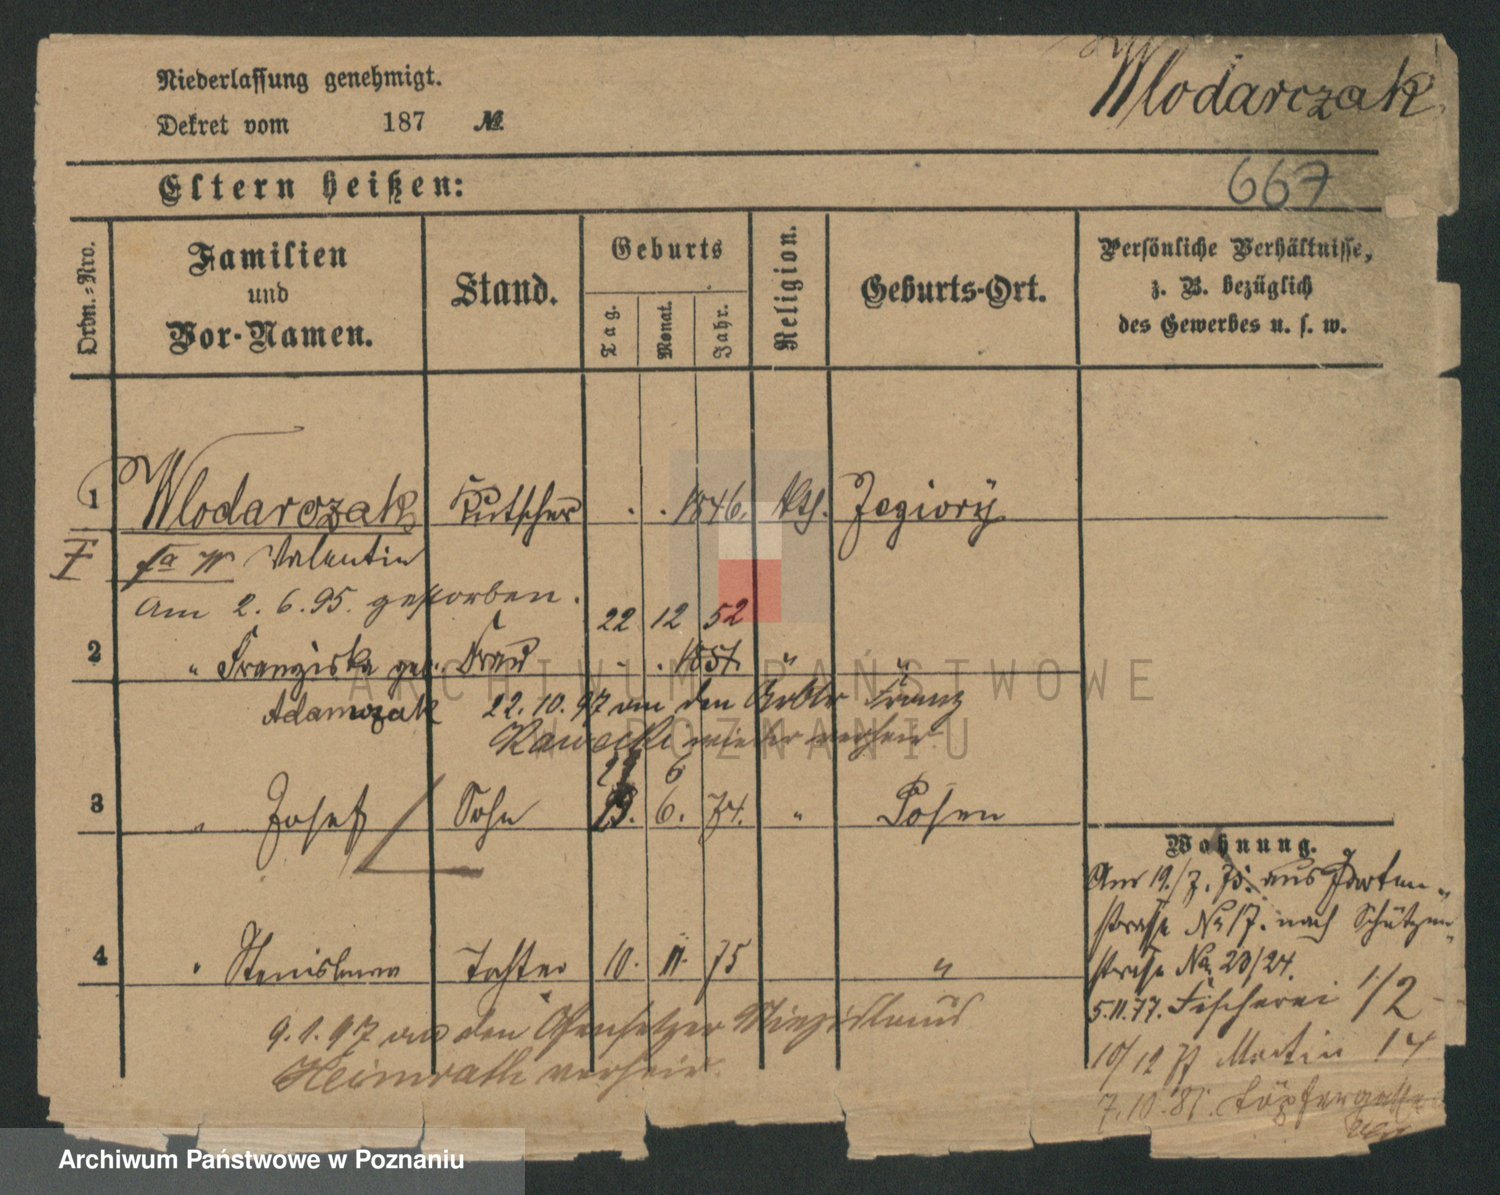 Niederlassung genehmigt.
Wlodarczak
Dekret vom 187 №
667
Eltern heißen:
Ordn.-Nro.
Familien und Vor-Namen.
Stand.
Geburts
Tag.
Monat.
Jahr.
Religion.
Geburts-Ort.
Persönliche Verhältnisse, z. B. bezüglich des Gewerbes u. s. w.
1 Wlodarczak Kutscher . . 1846. kth. Zegiory
Valentin
am 2. 6. 95. gestorben.
22 12 52
2 " Franziska geb. Frau . . 1851. " "
Adamczak 22. 10. 97 an den Arbtr Franz
Kawecki wieder verheir.
29 6
3 " Josef Sohn 6. 74. " Posen
Wohnung.
Am 19./7. 75. aus Garten-
strasse No 17. nach Schützen-
strasse No 23/24.
4 " Stanislawa Tochter 10. 11. 75 "
5.11.77. Fischerei 1/2
9. 1. 97 an den Ofensetzer Miezislaus
Heimrath verheir.
10/12 77 Martin 14
7. 10. 81. Töpfergasse
ARCHIWUM PAŃSTWOWE
W POZNANIU
Archiwum Państwowe w Poznaniu